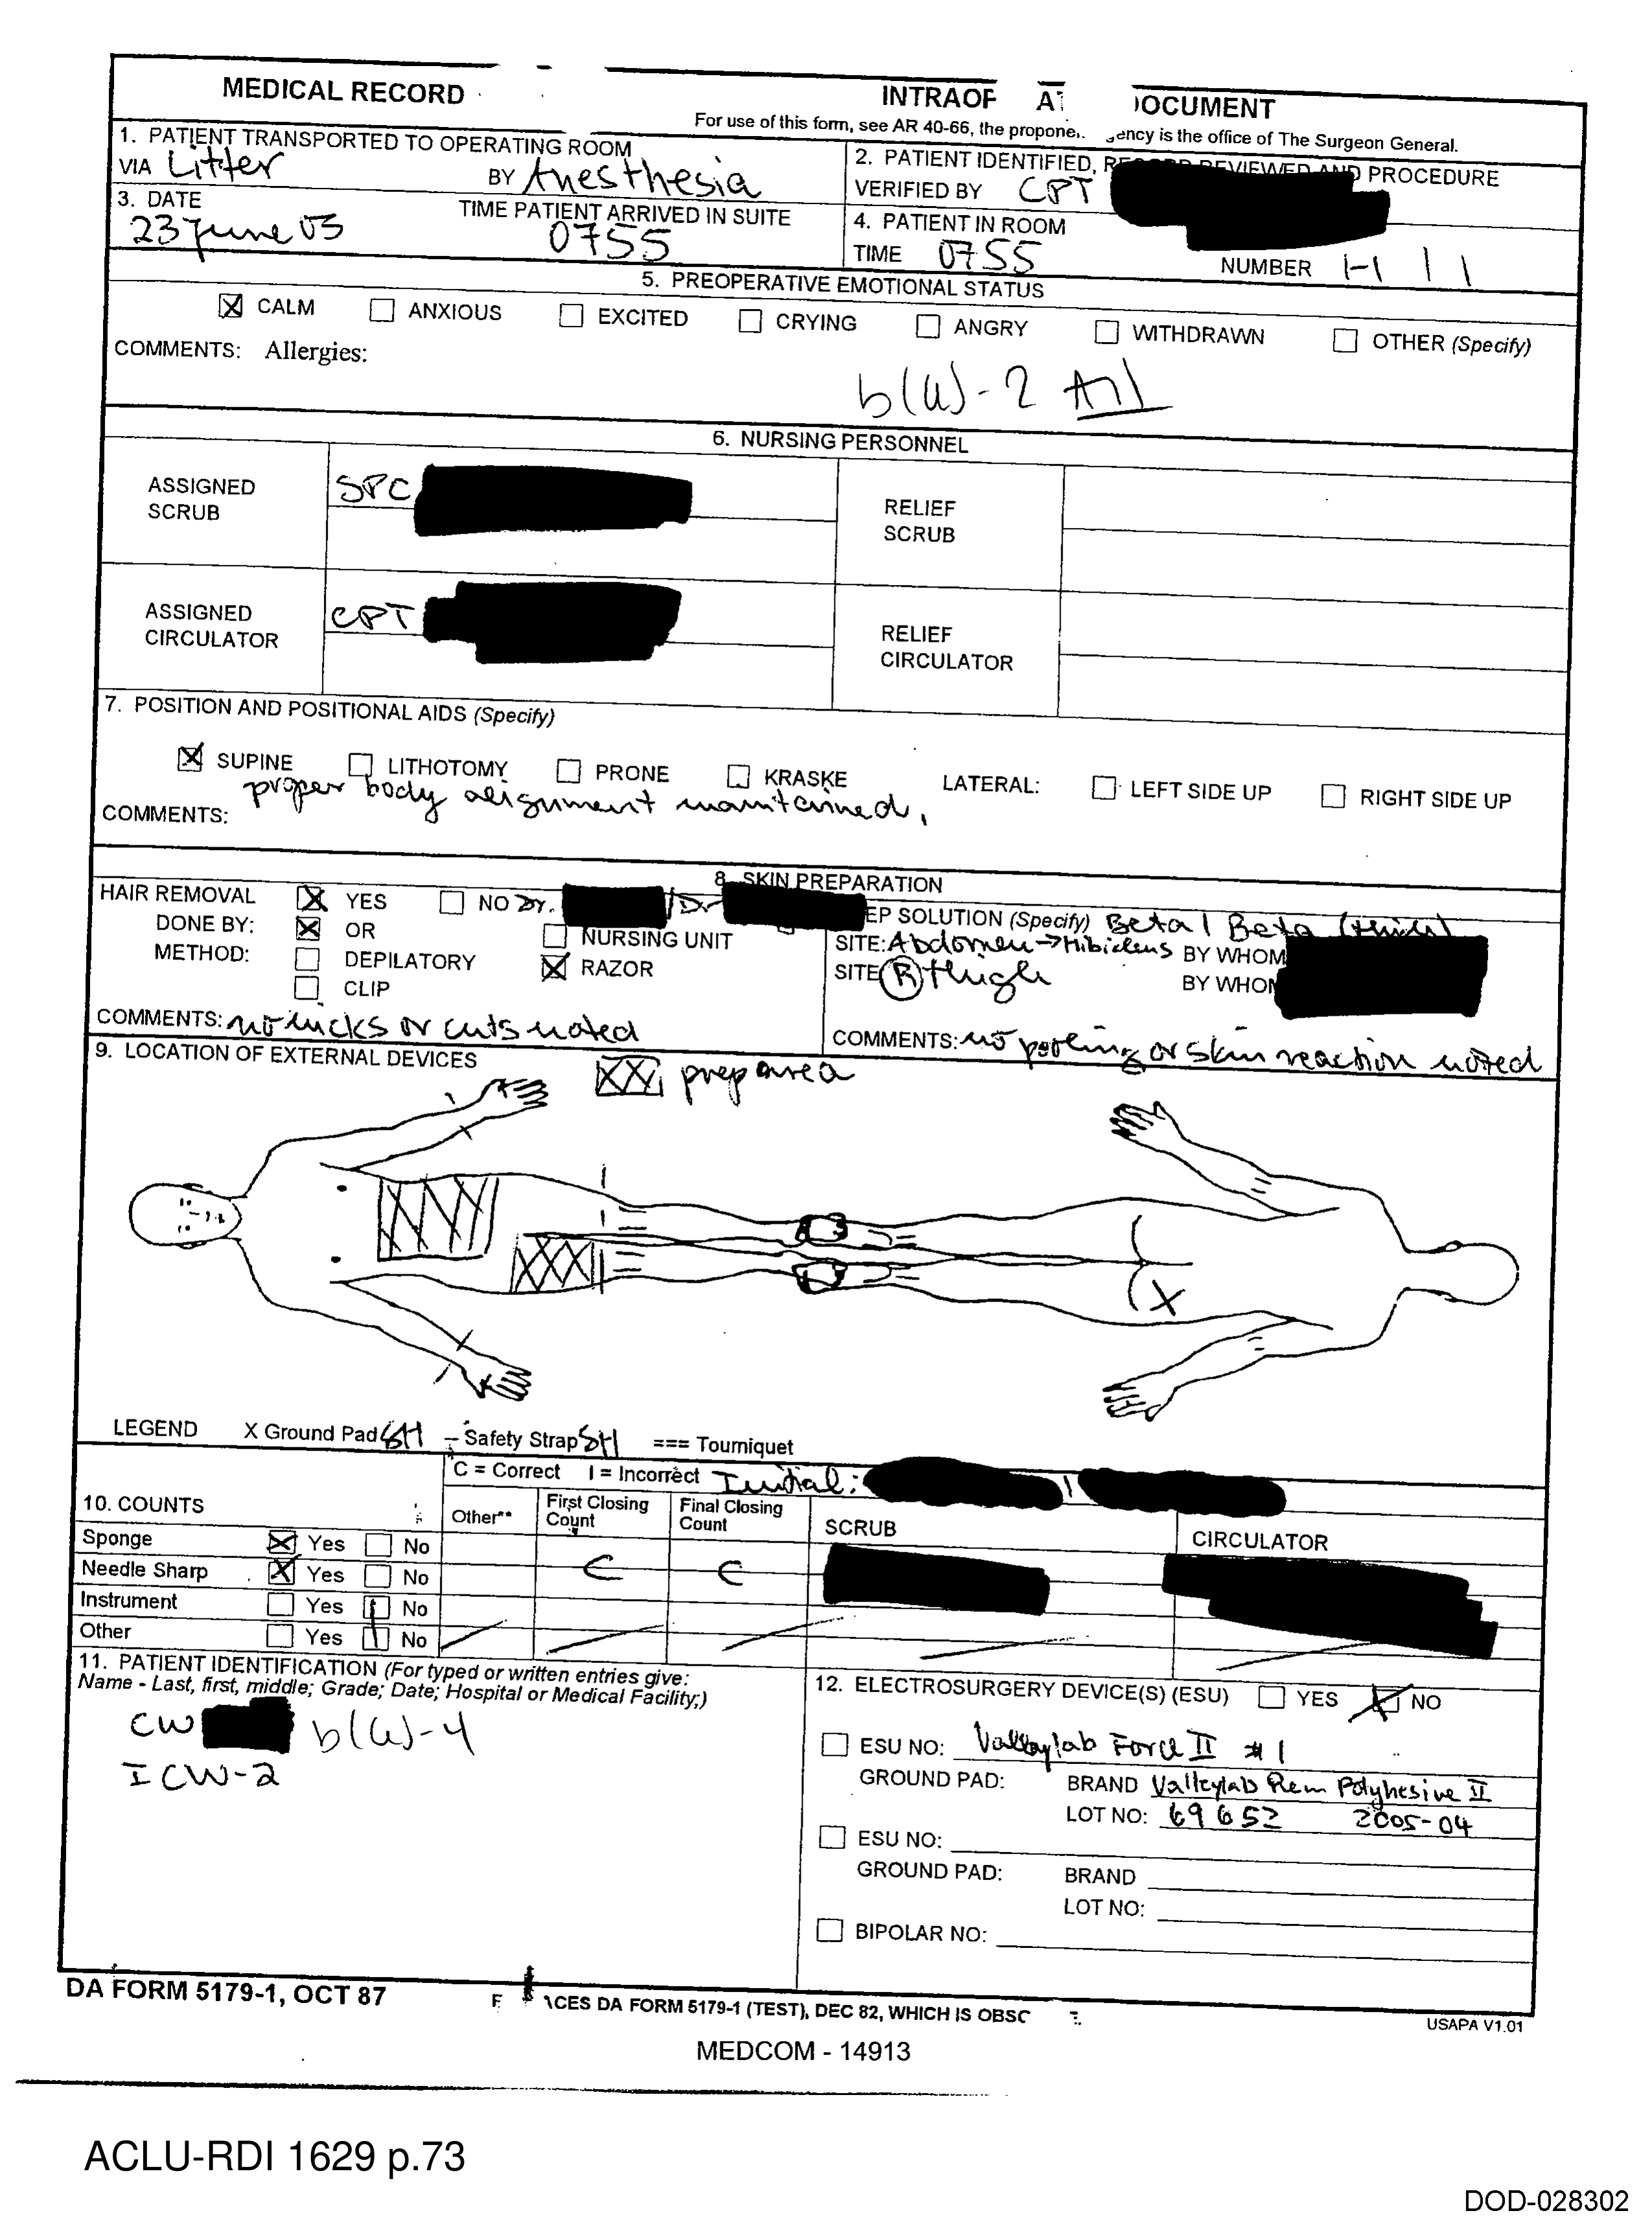 MEDICAL RECORD
INTRAOF AT OCUMENT
For use of this form, see AR 40-66, the propone ency is the office of The Surgeon General.
1. PATIENT TRANSPORTED TO OPERATING ROOM
VIA Litter BY Anesthesia
2. PATIENT IDENTIFIED, RECORD REVIEWED AND PROCEDURE
VERIFIED BY CPT
3. DATE TIME PATIENT ARRIVED IN SUITE
23 June 03 0755
4. PATIENT IN ROOM
TIME 0755 NUMBER
5. PREOPERATIVE EMOTIONAL STATUS
CALM ANXIOUS EXCITED CRYING ANGRY WITHDRAWN OTHER (Specify)
COMMENTS: Allergies:
b(6)-2 All
6. NURSING PERSONNEL
ASSIGNED SCRUB SPC
RELIEF SCRUB
ASSIGNED CIRCULATOR CPT
RELIEF CIRCULATOR
7. POSITION AND POSITIONAL AIDS (Specify)
SUPINE LITHOTOMY PRONE KRASKE LATERAL: LEFT SIDE UP RIGHT SIDE UP
COMMENTS: proper body alignment maintained.
8. SKIN PREPARATION
HAIR REMOVAL YES NO Dr. / Dr.
DONE BY: OR NURSING UNIT
METHOD: DEPILATORY RAZOR
CLIP
COMMENTS: no nicks or cuts noted
EP SOLUTION (Specify) Beta / Beta (thigh)
SITE: Abdomen → Hibiclens BY WHOM
SITE (R) thigh BY WHOM
COMMENTS: no pooling or skin reaction noted
9. LOCATION OF EXTERNAL DEVICES
prep area
LEGEND X Ground Pad SH - Safety Strap SH === Tourniquet
C = Correct I = Incorrect Initial: /
10. COUNTS Other** First Closing Count Final Closing Count SCRUB CIRCULATOR
Sponge Yes No
Needle Sharp Yes No C C
Instrument Yes No
Other Yes No
11. PATIENT IDENTIFICATION (For typed or written entries give:
Name - Last, first, middle; Grade; Date; Hospital or Medical Facility;)
CW b(6)-4
ICW-2
12. ELECTROSURGERY DEVICE(S) (ESU) YES NO
ESU NO: Valleylab Force II #1
GROUND PAD: BRAND Valleylab Rem Polyhesive II
LOT NO: 69652 2005-04
ESU NO:
GROUND PAD: BRAND
LOT NO:
BIPOLAR NO:
DA FORM 5179-1, OCT 87
ACES DA FORM 5179-1 (TEST), DEC 82, WHICH IS OBSC
USAPA V1.01
MEDCOM - 14913
ACLU-RDI 1629 p.73
DOD-028302